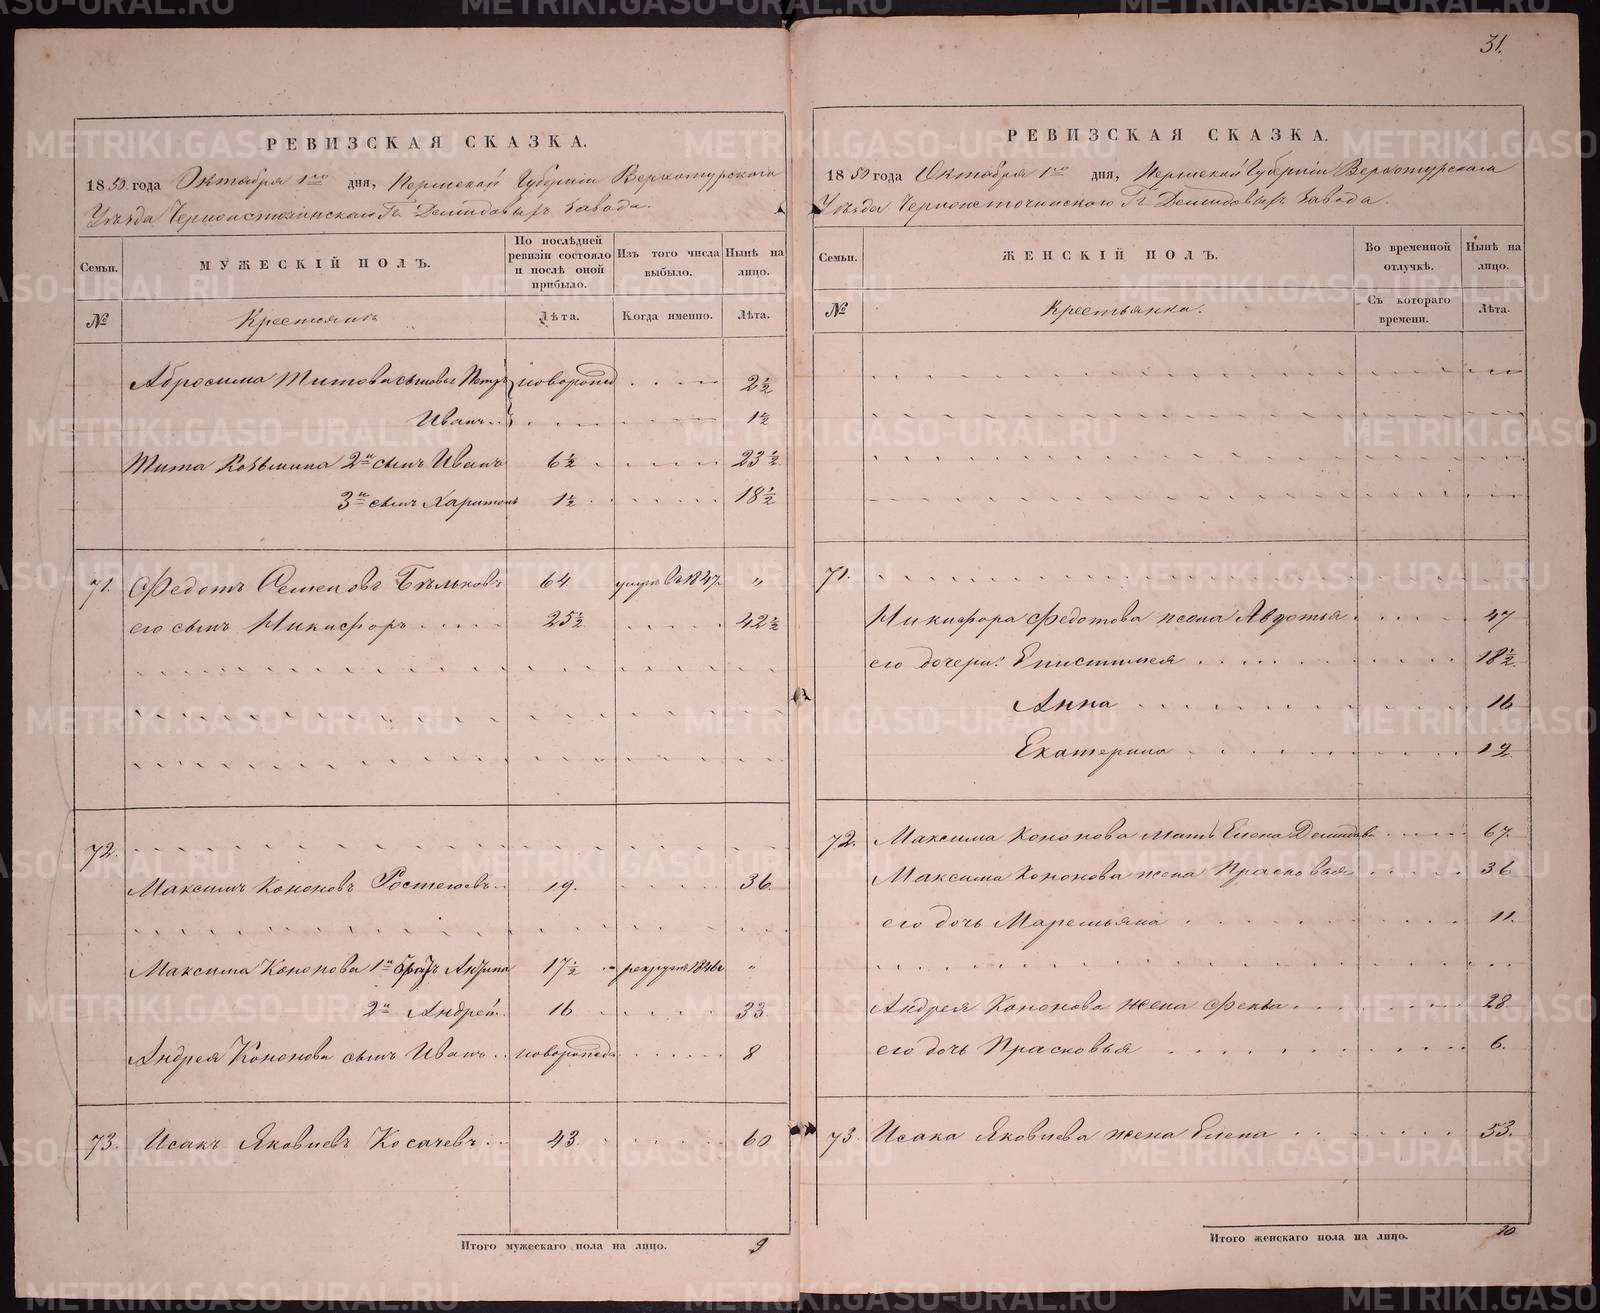 31.
РЕВИЗСКАЯ СКАЗКА.
1850 года Октября 1го дня, Пермской Губерніи Верхотурского
Уѣзда Черноисточинского Гг. Демидовыхъ Завода.
Семьи.
МУЖЕСКІЙ ПОЛЪ.
По послѣдней ревизіи состояло и послѣ оной прибыло.
Изъ того числа выбыло.
Нынѣ на лицо.
№
Крестьянъ
Лѣта.
Когда именно.
Лѣта.
Абросима Титова сыновья Петръ новорожд. 2½
Иванъ 1½
Тита Козьмина 2й сынъ Иванъ 6½ 23½
3й сынъ Харитонъ 1½ 18½
71. Федотъ Семеновъ Бѣльковъ 64. умре въ 1847. „
его сынъ Никифоръ 25½ 42½
72.
Максимъ Кононовъ Ростегаевъ 19. 36
Максима Кононова 1й братъ 17½ рекрутъ 1846 „
2й Андрей 16 33.
Андрея Кононова сынъ Иванъ новорожд. 8
73. Исакъ Яковлевъ Косачевъ 43 60
Итого мужескаго пола на лицо. 9
РЕВИЗСКАЯ СКАЗКА.
1850 года Октября 1го дня, Пермской Губерніи Верхотурскаго
Уѣзда Черноисточинского Гг. Демидовыхъ Завода.
Семьи.
ЖЕНСКІЙ ПОЛЪ.
Во временной отлучкѣ.
Нынѣ на лицо.
№
Крестьянки.
Съ котораго времени.
Лѣта.
71.
Никифора Федотова жена Авдотья 47
его дочери: Епистимея 18½
Анна 16
Екатерина 12
72. Максима Кононова мать Елена Демидова 67.
Максима Кононова жена Прасковья 36
его дочь Маремьяна 11.
Андрея Кононова жена Фекла 28
его дочь Прасковья 6.
73. Исака Яковлева жена Елена 53.
Итого женскаго пола на лицо. 10
METRIKI.GASO-URAL.RU